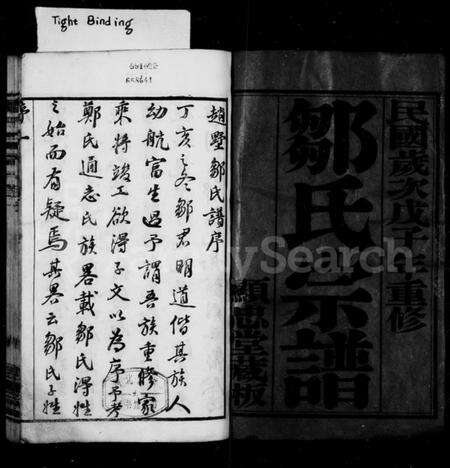 Tight Binding
民國歲次戊子年重修
鄒氏宗譜
顯忠堂藏板
趙墅鄒氏譜序
丁亥之冬鄒君明道偕其族人
幼航富生過予謂吾族重修家
乘將竣工欲得子文以為序予考
鄭氏通志氏族畧載鄒氏得姓
之始而有疑焉其畧云鄒氏子姓
序一
FamilySearch